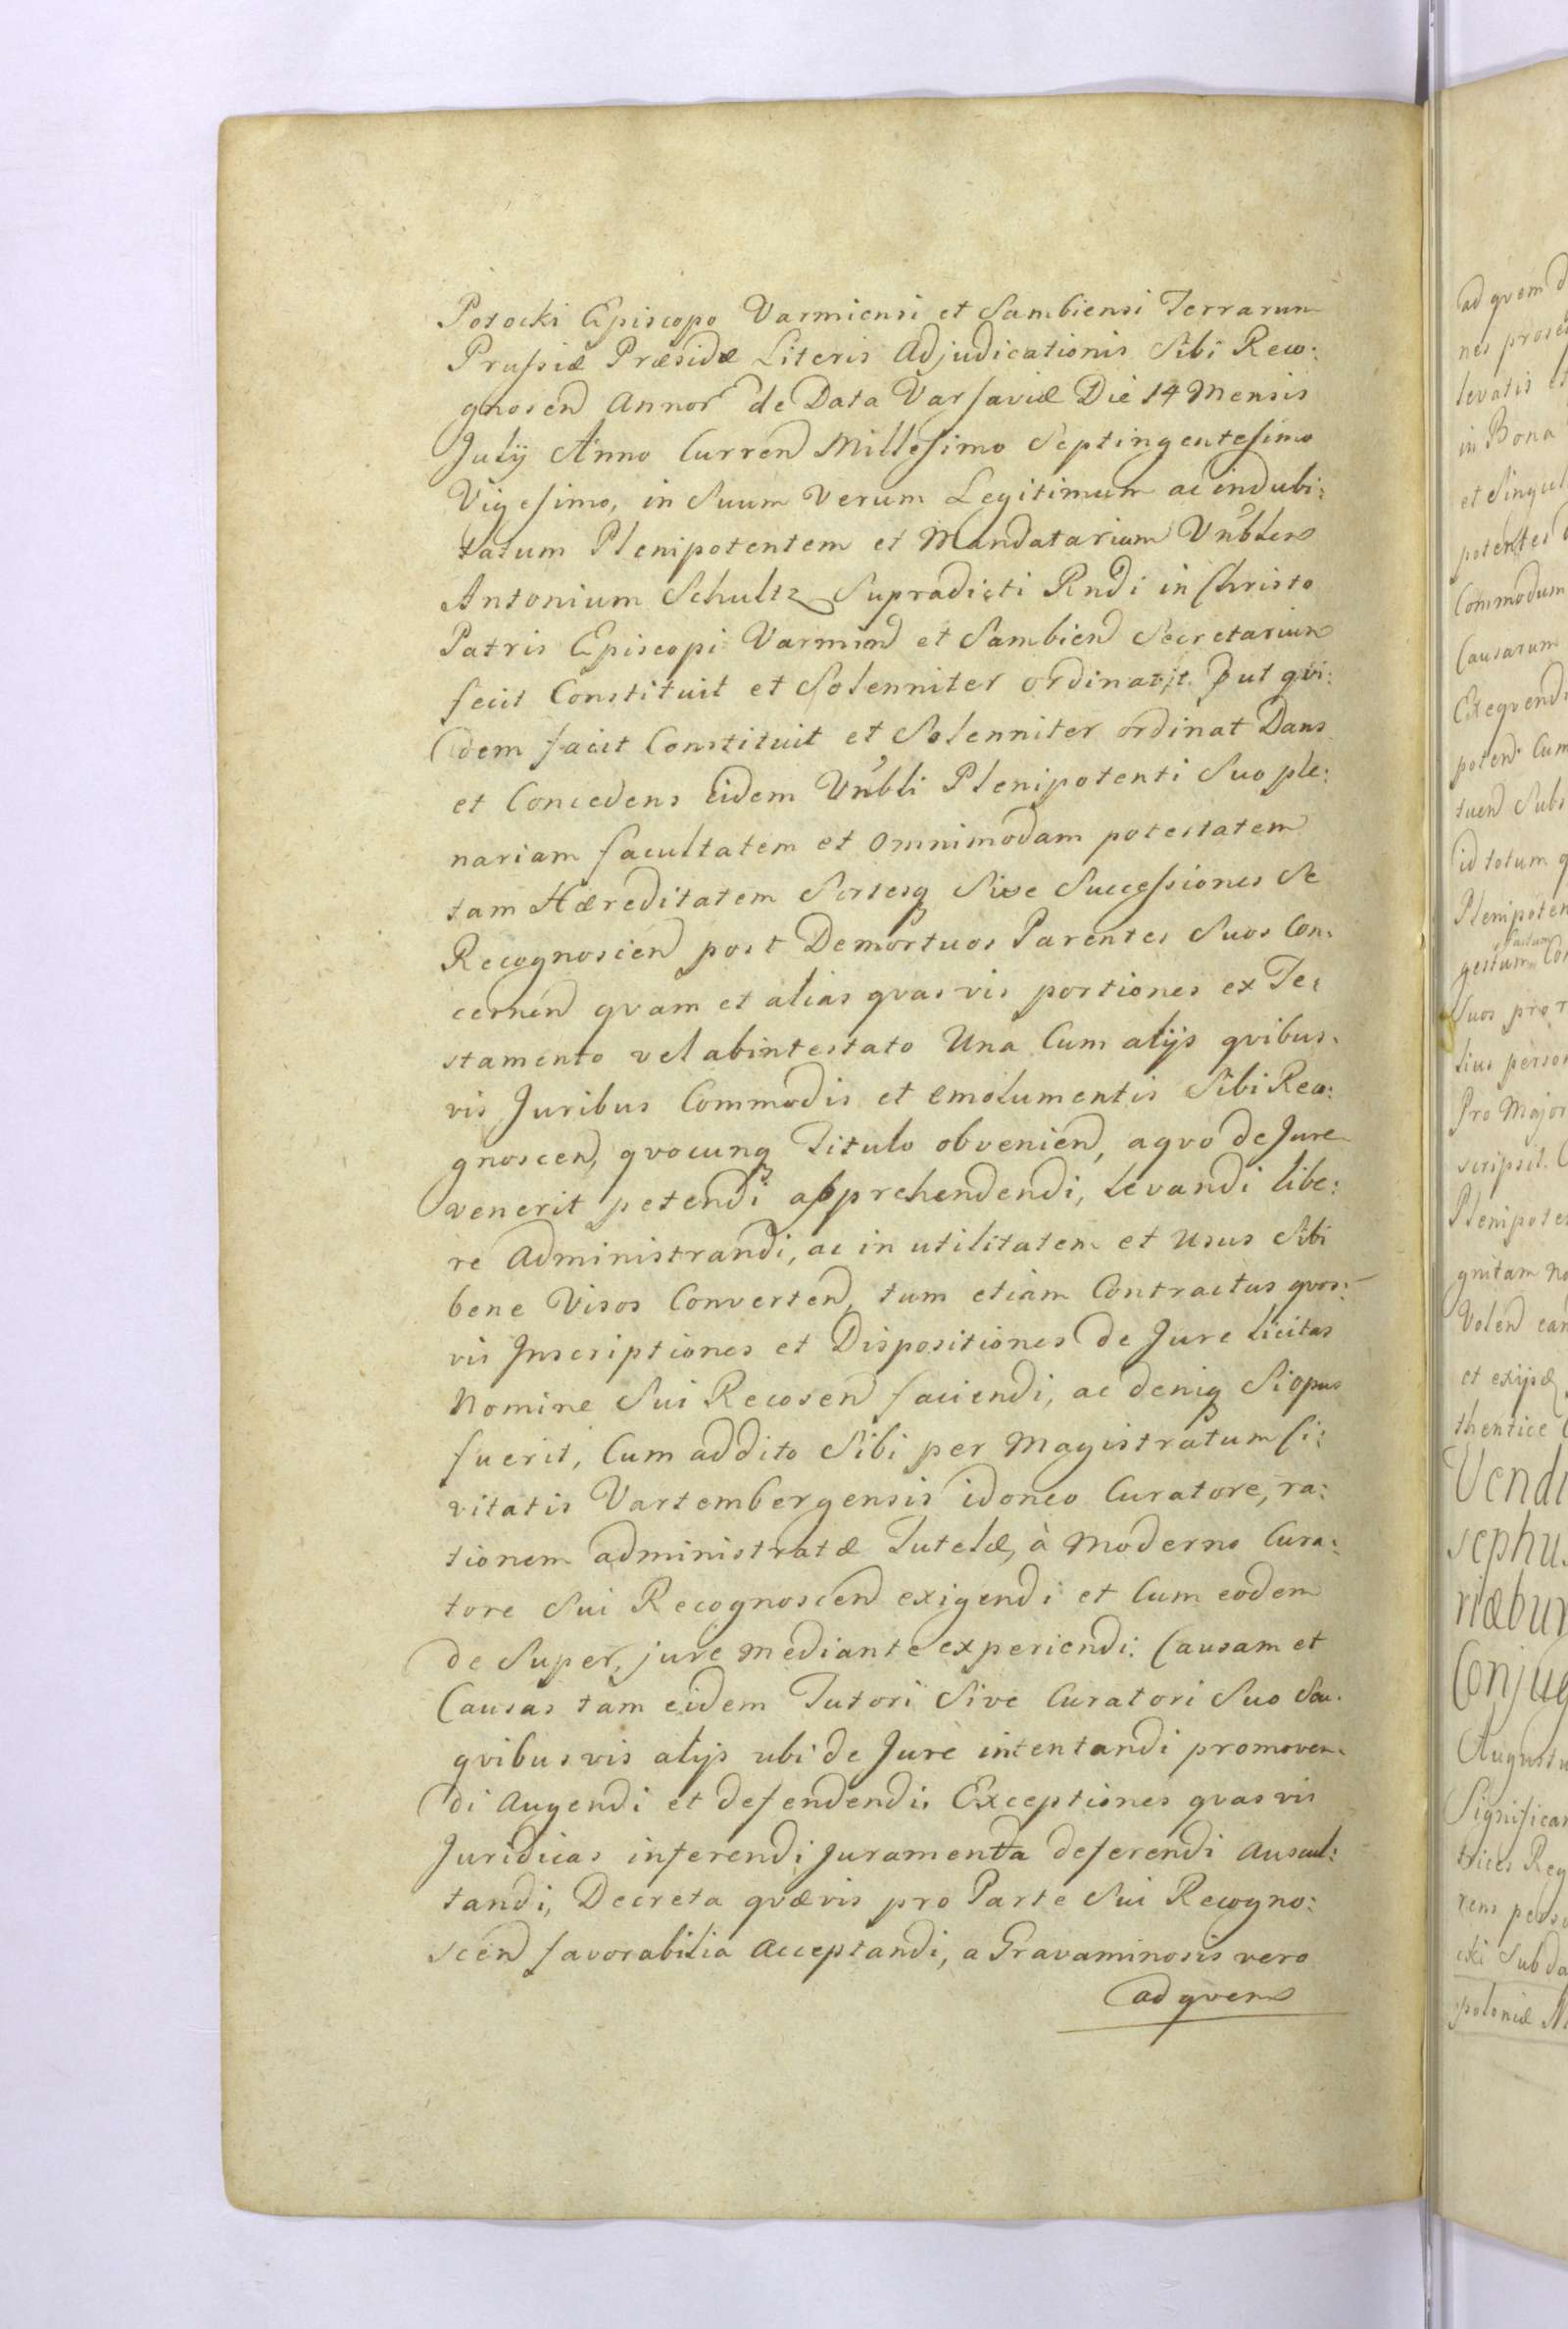 Potocki Episcopo Varmiensi et Sambiensi Terrarum
Prussiæ Præside Literis Adjudicationis Sibi Reco:
gnoscen Annor de Data Varsaviæ Die 14 Mensis
Julij Anno Curren Millesimo Septingentesimo
Vigesimo, in Suum Verum Legitimum ac indubi:
tatum Plenipotentem et Mandatarium Vnblem
Antonium Schultz Supradicti Rndi in Christo
Patris Episcopi Varmien et Sambien Secretarium
fecit Constituit et Solenniter ordinavit. Put qvi:
dem facit Constituit et Solenniter ordinat Dans
et Concedens eidem Vnbli Plenipotenti Suo ple:
nariam facultatem et omnimodam potestatem
tam Hæreditatem Sortesq Sive Successiones Se
Recognoscien post Demortuos Parentes Suos Con:
cernen qvam et alias qvasvis portiones ex Te:
stamento vel abintestato Una Cum alijs qvibus:
vis Juribus Commodis et emolumentis Sibi Reco:
gnoscen, qvocunq Titulo obvenien, a qvo de Jure
venerit petendi apprehendendi, levandi libe:
re Administrandi, ac in utilitatem et Usus Sibi
bene Visos Converten, tum etiam Contractus qvos:
vis Inscriptiones et Dispositiones de Jure licitas
Nomine Sui Recosen faciendi, ac deniq Si opus
fuerit, Cum addito Sibi per Magistratum Ci:
vitatis Vartembergensis idoneo Curatore, ra:
tionem administratæ Tutelæ, à Moderno Cura:
tore Sui Recognoscen exigendi et Cum eodem
de Super, jure mediante experiendi: Causam et
Causas tam eidem Tutori Sive Curatori Suo Seu
qvibusvis alijs ubi de Jure intentandi promoven:
di Augendi et defendendi, Exceptiones qvasvis
Juridicas inferendi, Juramenta deferendi Auscul:
tandi, Decreta qvævis pro Parte Sui Recogno:
scen favorabilia Acceptandi, a Gravaminosis vero
ad qvem
ad qvem
levatis
in Bona
et Singul
potentes
Commodum
Causarum
Exeqvendi
poten Cum
tuen Subs
id totum
Plenipoten
factum
gestum
Suos pro
Pro Major
scripsit.
Plenipote
gnitam
Volen
et
thentice
Vendi
sephus
Conjug
Augustu
Significa
Reg
rens
Sub
poloniæ